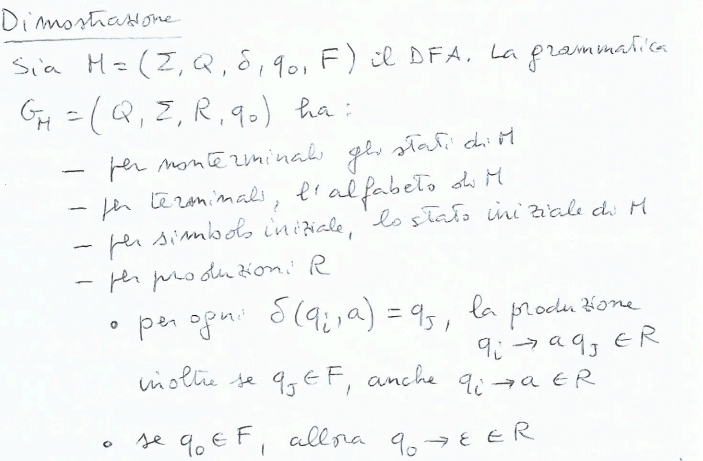 Dimostrazione
Sia M = (Σ, Q, δ, q₀, F) il DFA. La grammatica
G_M = (Q, Σ, R, q₀) ha:
— per nonterminali gli stati di M
— per terminali, l'alfabeto di M
— per simbolo iniziale, lo stato iniziale di M
— per produzioni R
• per ogni δ(qᵢ, a) = qⱼ, la produzione
qᵢ → a qⱼ ∈ R
inoltre se qⱼ ∈ F, anche qᵢ → a ∈ R
• se q₀ ∈ F, allora q₀ → ε ∈ R